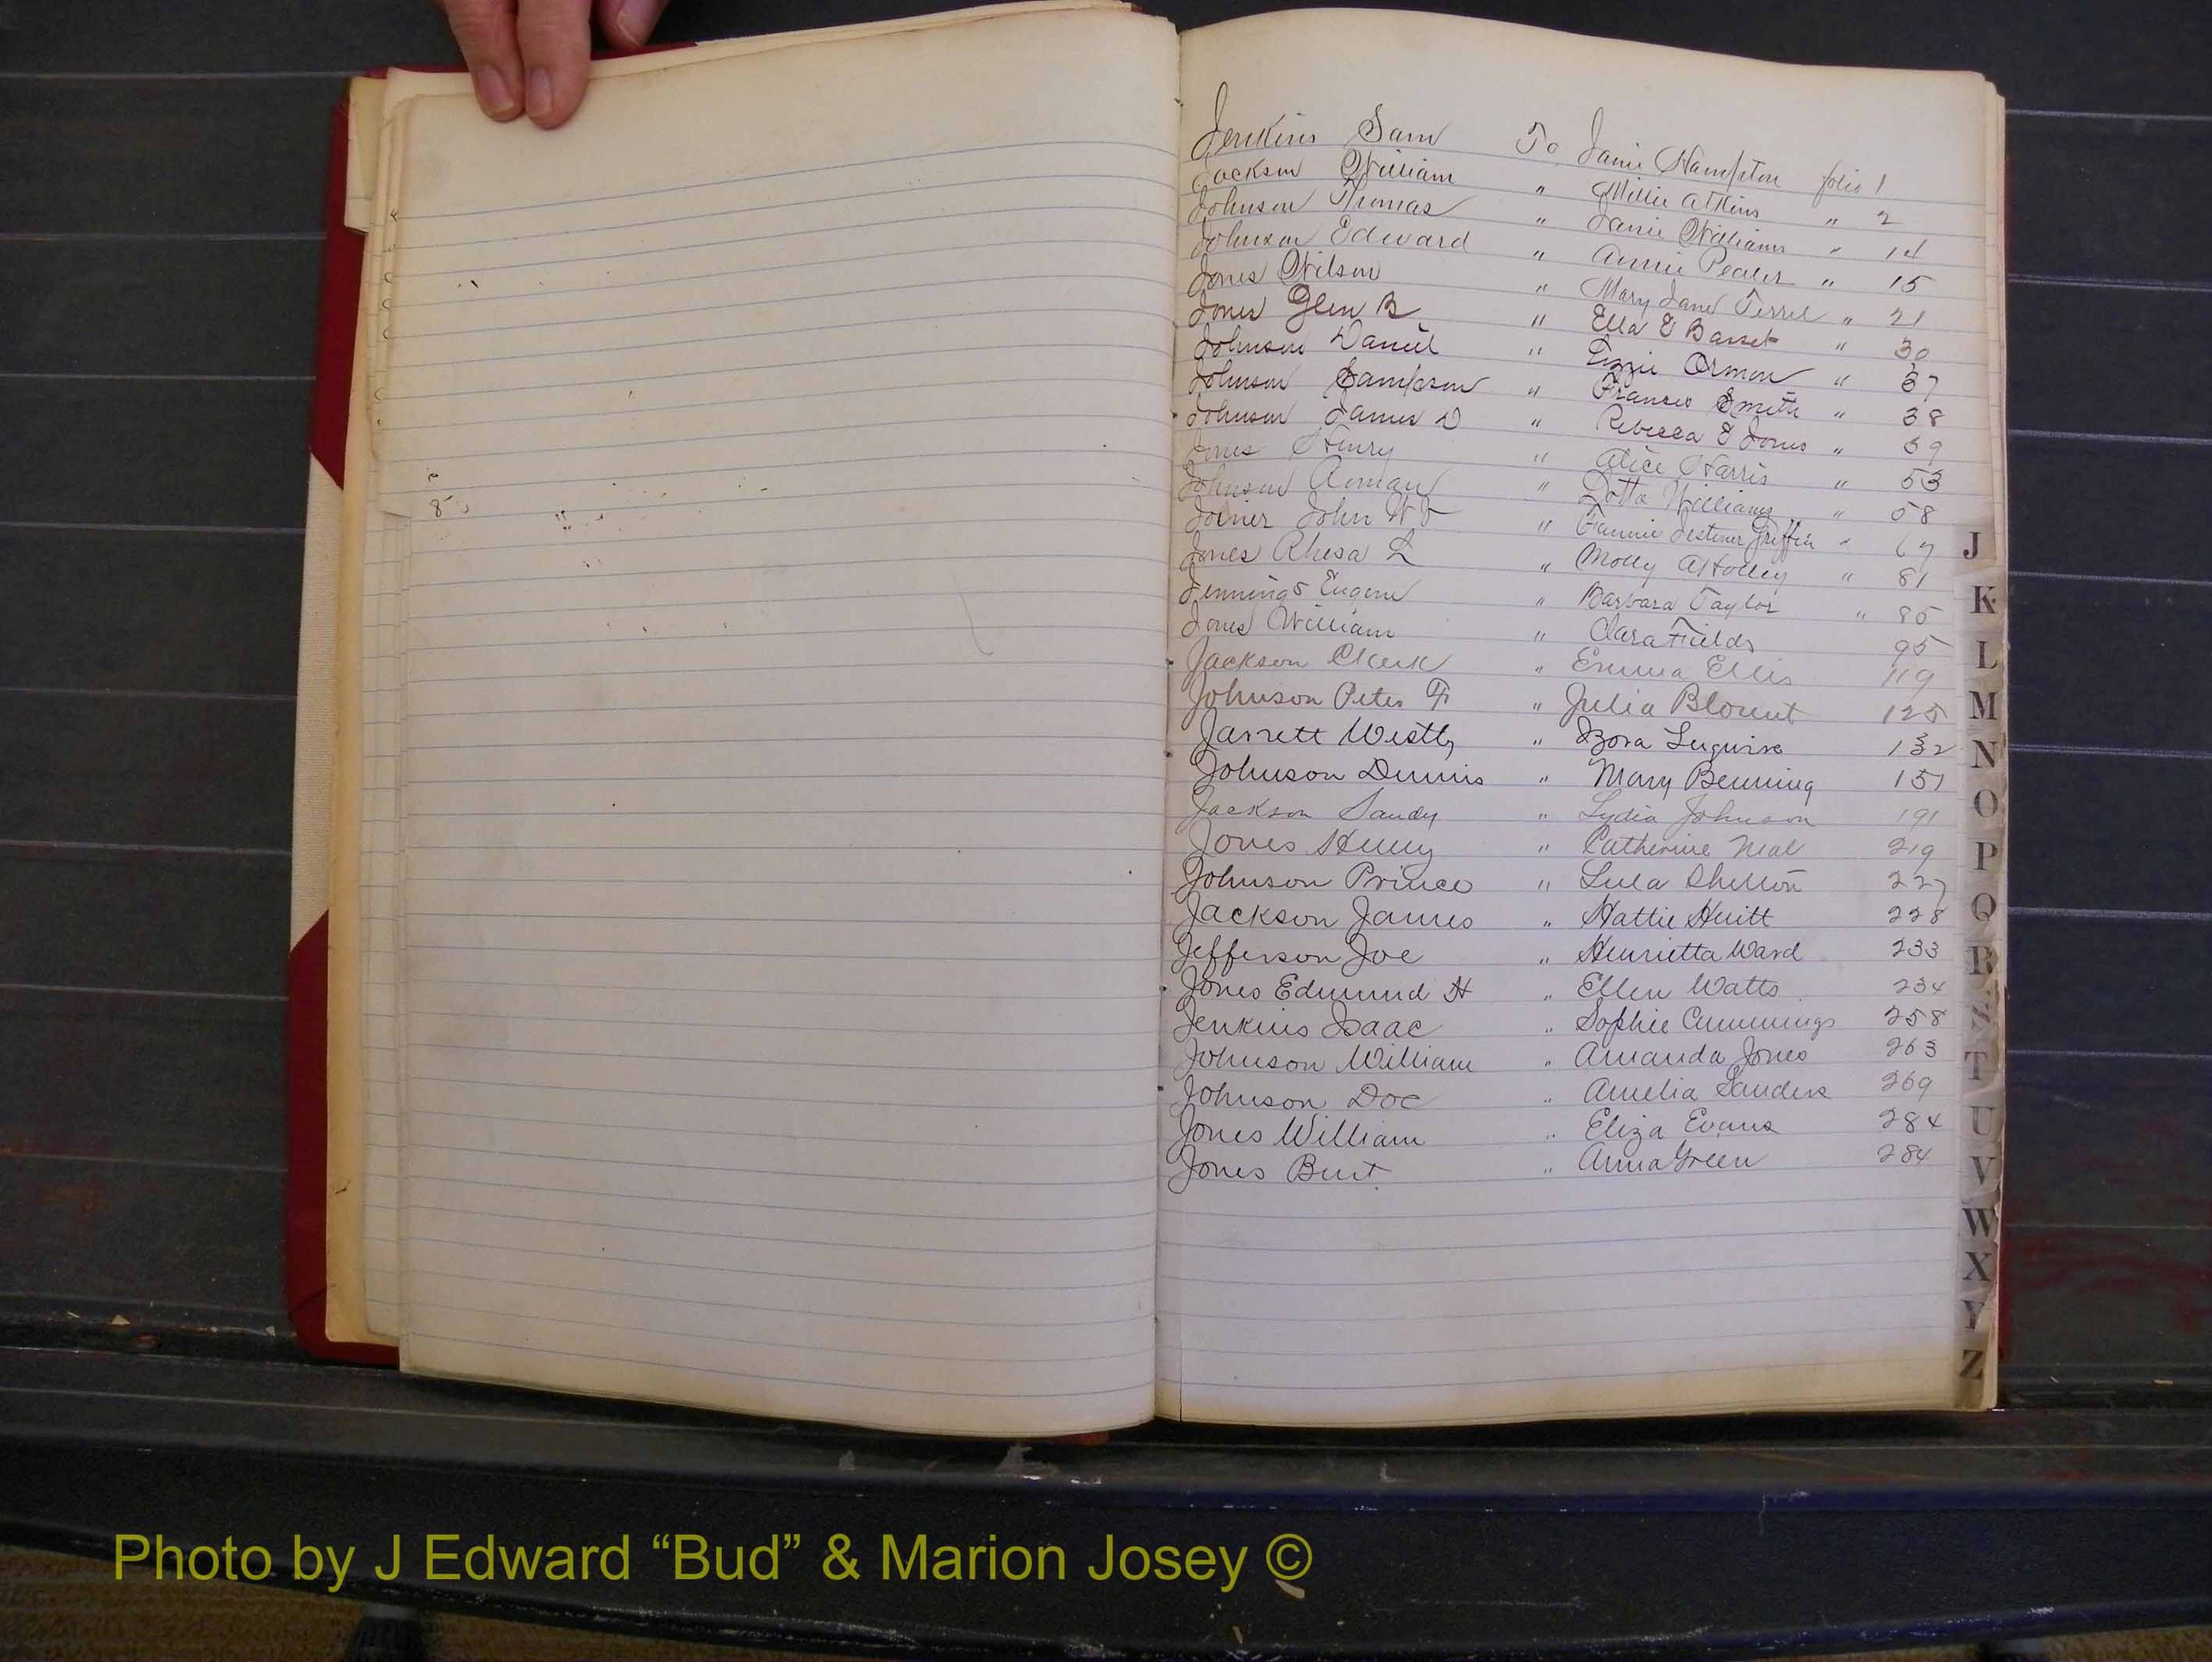 Jenkins Sam To Janie Hampton folio 1
Jackson William " Millie Atkins " 2
Johnson Thomas " Janie Williams " 14
Johnson Edward " Annie Pealer " 15
Jones Wilson " Mary Jane Terrel " 21
Jones Glen B " Ella E Basset " 30
Johnson Daniel " Lizzie Ormon " 37
Johnson Sampson " Frances Smith " 38
Johnson James D " Rebecca E Jones " 39
Jones Henry " Alice Harris " 53
Johnson " Lotta Williams " 58
Joiner John W " Fannie Griffin " 67
Jones Rhesa L " Molly A Holley " 81
Jennings Eugene " Barbara Taylor " 85
Jones William " Clara Fields 95
Jackson Clark " Emma Ellis 119
Johnson Peter " Julia Blount 125
Jarrett Westly " Zora 132
Johnson Dennis " Mary Benning 151
Jackson Sandy " Lydia Johnson 191
Jones Henry " Catherine Neal 219
Johnson Prince " Lula Shelton 227
Jackson James " Hattie Huitt 228
Jefferson Joe " Henrietta Ward 233
Jones Edmund H " Ellen Watts 234
Jenkins Isaac " Sophie Cummings 258
Johnson William " Amanda Jones 263
Johnson Doc " Amelia Sanders 269
Jones William " Eliza Evans 284
Jones Burt " Anna Green 284
J
K
L
M
N
O
P
Q
R
S
T
U
V
W
X
Y
Z
Photo by J Edward “Bud” & Marion Josey ©